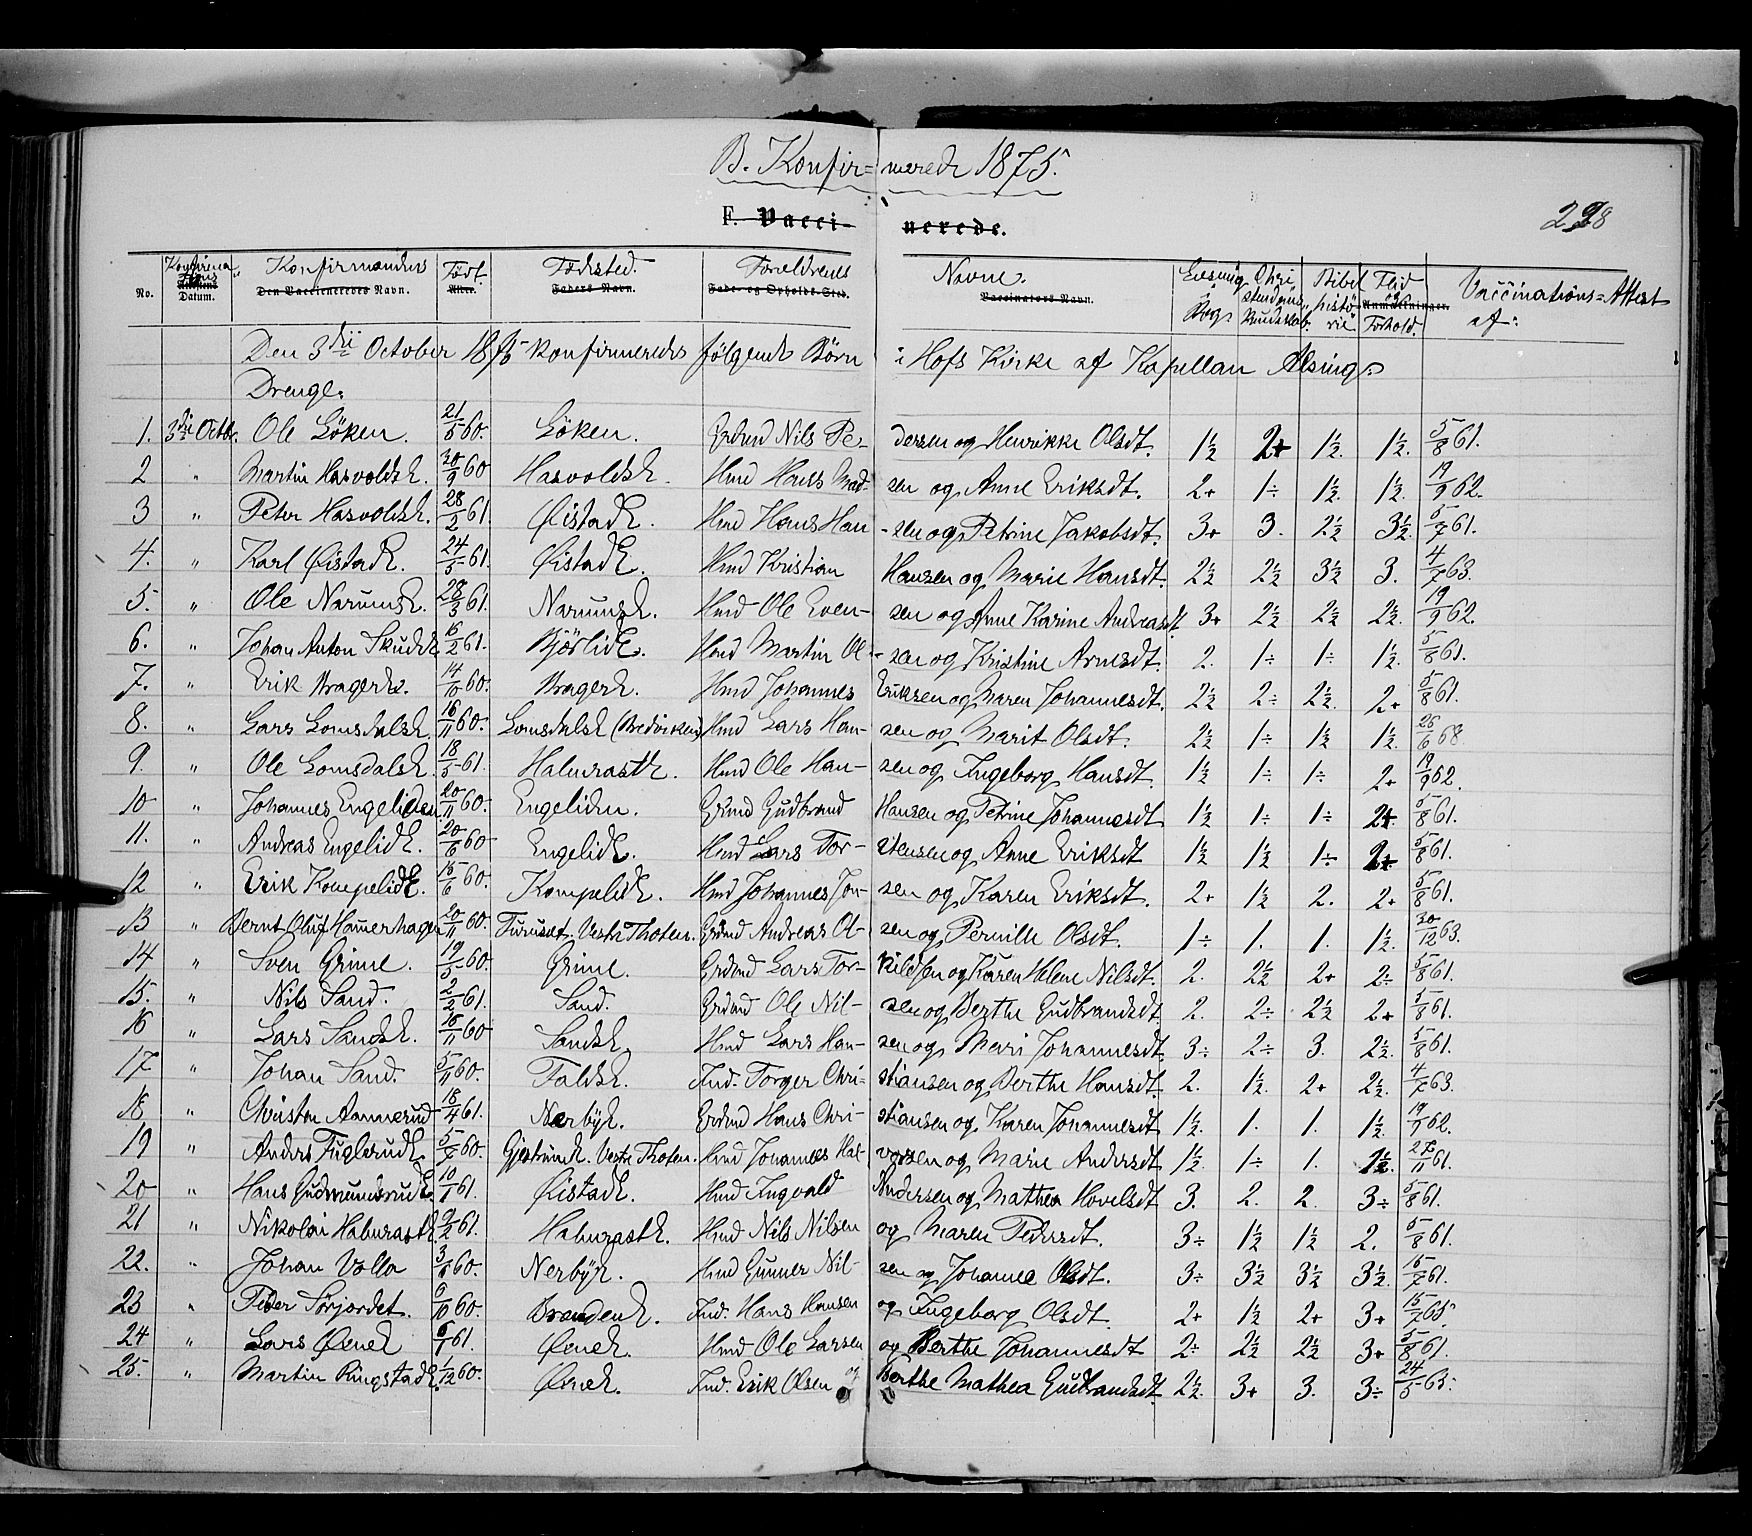 B. Konfir= merede 1875.
F. Vacci- nerede.
228
No. Konfirmations Datum. Konfirmandens Navn. Født. Fødested. Forældrenes Navne. Christendoms Kundskab. Bibelhistorie Flid og Forhold Vaccinations=Attest af:
Den 3die October 1875 konfirmeredes følgende Børn i Hofs Kirke af Kapellan Alsing:
Drenge:
1. 3die Octbr. Ole Løken. 21/5 60. Løken. Grdmd Nils Pe- dersen og Henrikke Olsdt. 1½ 2+ 1½. 1½. 5/8 61.
2 " Martin Hasvoldsk. 30/9 60 Hasvoldsk. Hmd Hans Mad- sen og Anne Eriksdt. 2+ 1÷ 1½. 1½. 19/9 62.
3 " Peter Hasvoldsk. 28/2 61. Øistadk. Hmd Hans Han- sen og Petrine Jakobsdt. 3+ 3. 2½ 3½. 5/7 61.
4. " Karl Øistadk. 24/5 61. Øistadk. Hmd Kristian Hansen og Marie Hansdt. 2½ 2½ 3½ 3. 4/7 63.
5. " Ole Narumsk. 28/3 61. Narumsk. Hmd Ole Even- sen og Anne Karine Andreasdt. 3+ 2½ 2½ 2½. 19/9 62.
6. " Johan Anton Skudsk. 16/2 61. Bjørlidk. Hmd Martin Ol- sen og Kristine Arnesdt. 2. 1÷ 1÷ 1½. 5/8 61.
7. " Erik Bragerk. 14/10 60. Bragerk. Hmd Johannes Eriksen og Maren Johannesdt. 2½ 2÷ 2½. 2+ 5/8 61.
8. " Lars Lomsdalsk. 16/11 60. Lomsdalsk Hmd Lars Han- sen og Marit Olsdt. 2½ 1÷ 1½ 1½. 26/6 68
9. " Ole Lomsdalsk. 18/5 61. Halmrastk. Hmd Ole Han- sen og Ingeborg Hansdt. 1½ 1÷ 1÷ 2+ 19/9 62.
10 " Johannes Engeliden. 20/11 60. Engeliden. Grdmd Gudbrand Hansen og Petrine Johannesdt. 1½ 1÷ 1÷ 2+. 5/8 61.
11. " Andreas Engelidk. 20/6 60 Engelidk. Hmd Lars Tor- stensen og Anne Eriksdt 1½ 1½ 1÷ 2+ 5/8 61.
12 " Erik Kompelidk. 15/6 60. Kompelidk. Hmd Johannes Jon- sen og Karen Eriksdt. 2+ 1½ 2. 2+ 5/8 61.
13 " Bernt Oluf Hamerhagen 20/11 60. Vestre Thoten. Grdmd Andreas Ol- sen og Pernille Olsdt. 1÷ 1. 1. 1½. 30/12 63.
14 " Sven Grime. 19/5 60. Grime. Grdmd Lars Tor- kildsen og Karen Helene Nilsdt. 2. 2½ 2+ 2÷ 5/8 61.
15. " Nils Sand. 2/2 61. Sand. Grdmd Ole Nil- sen og Berthe Gudbrandsdt. 2. 2÷ 2½ 2+ 5/8 61.
16 " Lars Sandsk. 16/11 60 Sandsk. Hmd Lars Han- sen og Mari Johannesdt. 3÷ 2÷ 3. 2½. 5/8 61.
17 " Johan Sand. 5/11 60. Faldsk. Ind. Torger Chri- stiansen og Berthe Hansdt. 2. 1½. 2+ 2½. 4/7 63.
18 " Christen Aannerud 18/4 61. Nerbyk. Grdmd Hans Chri- stiansen og Karen Johannesdt 1½. 1. 1. 1½. 19/9 62.
19 " Anders Fuglerudk. 5/5 60. Vestre Thoten. Hmd Johannes Hal- vorsen og Marie Andersdt 1½. 1÷ 1. 1½. 27/11 61.
20 " Hans Gudmundsrudk. 10/1 61. Øistadk. Hmd Ingvald Andersen og Mathea Hovelsdt 3. 2. 2. 3÷ 5/8 61.
21 " Nikolai Halmrastk. 9/2 61. Halmrastk. Hmd Nils Nilsen og Maren Pedersdt. 3÷ 1½ 1½ 2. 5/8 61.
22. " Johan Volla 3/6 60. Nerbyk. Hmd Gunner Nil- sen og Johanne Olsdt. 3÷ 3½ 3½ 3½. 15/7 61.
23 " Peder Sørjordet. 6/10 60. Brandenk. Ind. Hans Hansen og Ingeborg Olsdt. 2+ 1½ 2+ 3+ 15/7 65.
24 " Lars Ønek 6/1 61. Ønek. Hmd Ole Larsen og Berthe Johannesdt 2÷ 2½ 2½ 3+ 5/8 61.
25. " Martin Ringstadk. 1/12 60. Ønek. Ind. Erik Olsen og Berthe Mathea Gudbrandsdt. 2½. 3+ 3. 3÷ 24/5 65.